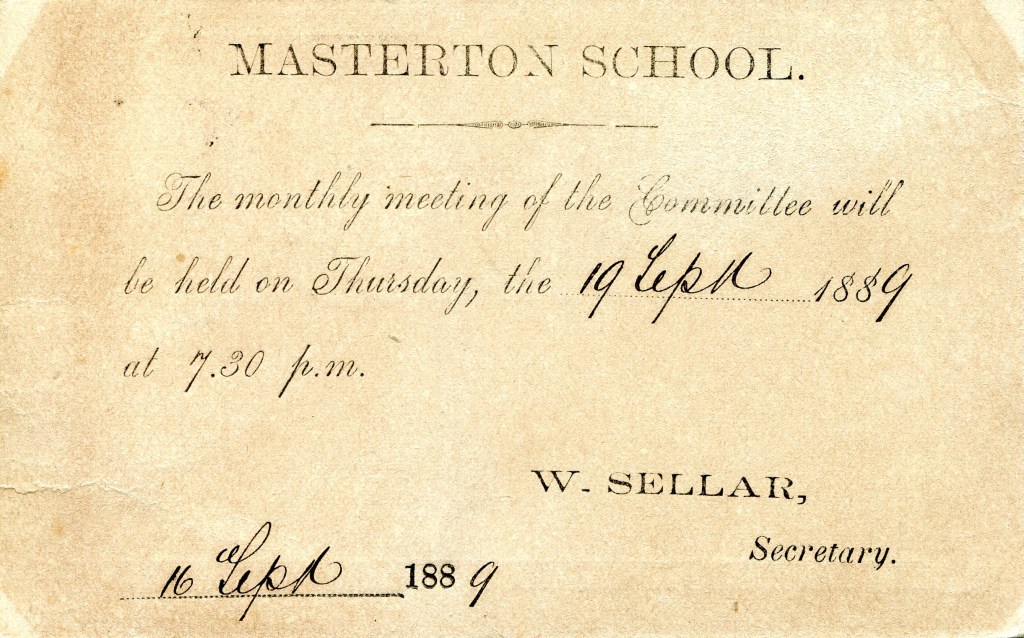 MASTERTON SCHOOL.
The monthly meeting of the Committee will
be held on Thursday, the 19 Sept 1889
at 7.30 p.m.
W. SELLAR,
Secretary.
16 Sept 1889